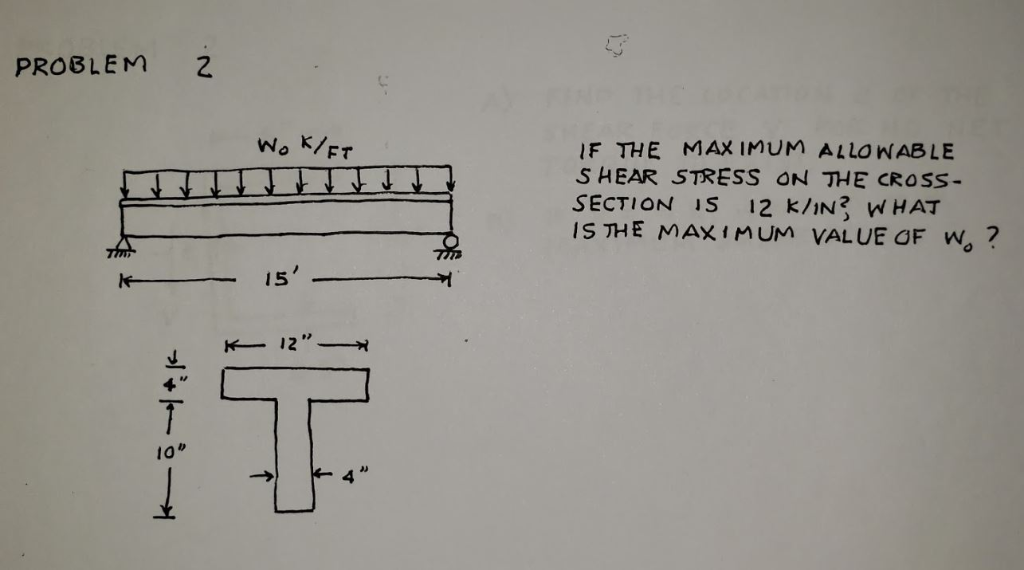 PROBLEM 2
W₀ K/FT
IF THE MAXIMUM ALLOWABLE
SHEAR STRESS ON THE CROSS-
SECTION IS 12 K/IN², WHAT
IS THE MAXIMUM VALUE OF W₀ ?
15'
12"
4"
10"
4"